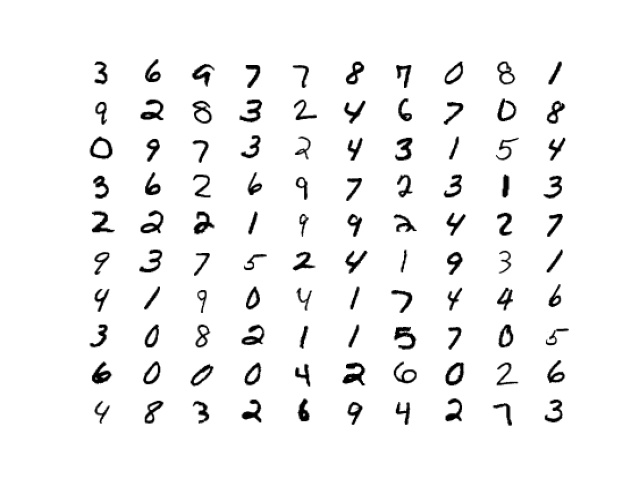 3 6 9 7 7 8 7 0 8 1
9 2 8 3 2 4 6 7 0 8
0 9 7 3 2 4 3 1 5 4
3 6 2 6 9 7 2 3 1 3
2 2 2 1 9 9 2 4 2 7
9 3 7 5 2 4 1 9 3 1
4 1 9 0 4 1 7 4 4 6
3 0 8 2 1 1 5 7 0 5
6 0 0 0 4 2 6 0 2 6
4 8 3 2 6 9 4 2 7 3